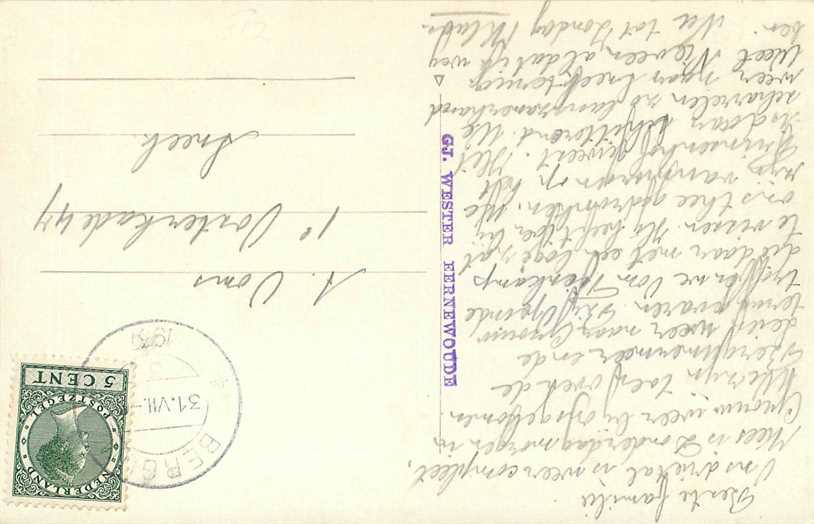 Beste familie.
Ons drietal is weer compleet,
Kees is Donderdagmorgen in
Grouw weer bij ons gekomen.
We zijn toen over de
Bergumermeer en de
Leien weer naar Grouw
teruggevaren. Bij Opeinde
troffen we Oom Tienkamp
die daar met een logé zat
te vissen. Hij heeft toen bij
ons thee gedronken. We
zijn vanmorgen op het
Prinsenhof geweest. Het
is daar schitterend. We
scharrelen zo langzamerhand
weer naar Sneek terug.
Weet Nieveen, al dat ik weg
ben. Nu tot Zondag Klaas.
GJ. WESTER EERNEWOUDE
BERGU
31.VII.
193
NEDERLAND
POSTZEGEL
5 CENT
A. Ooms
1e Oosterkade 47
Sneek